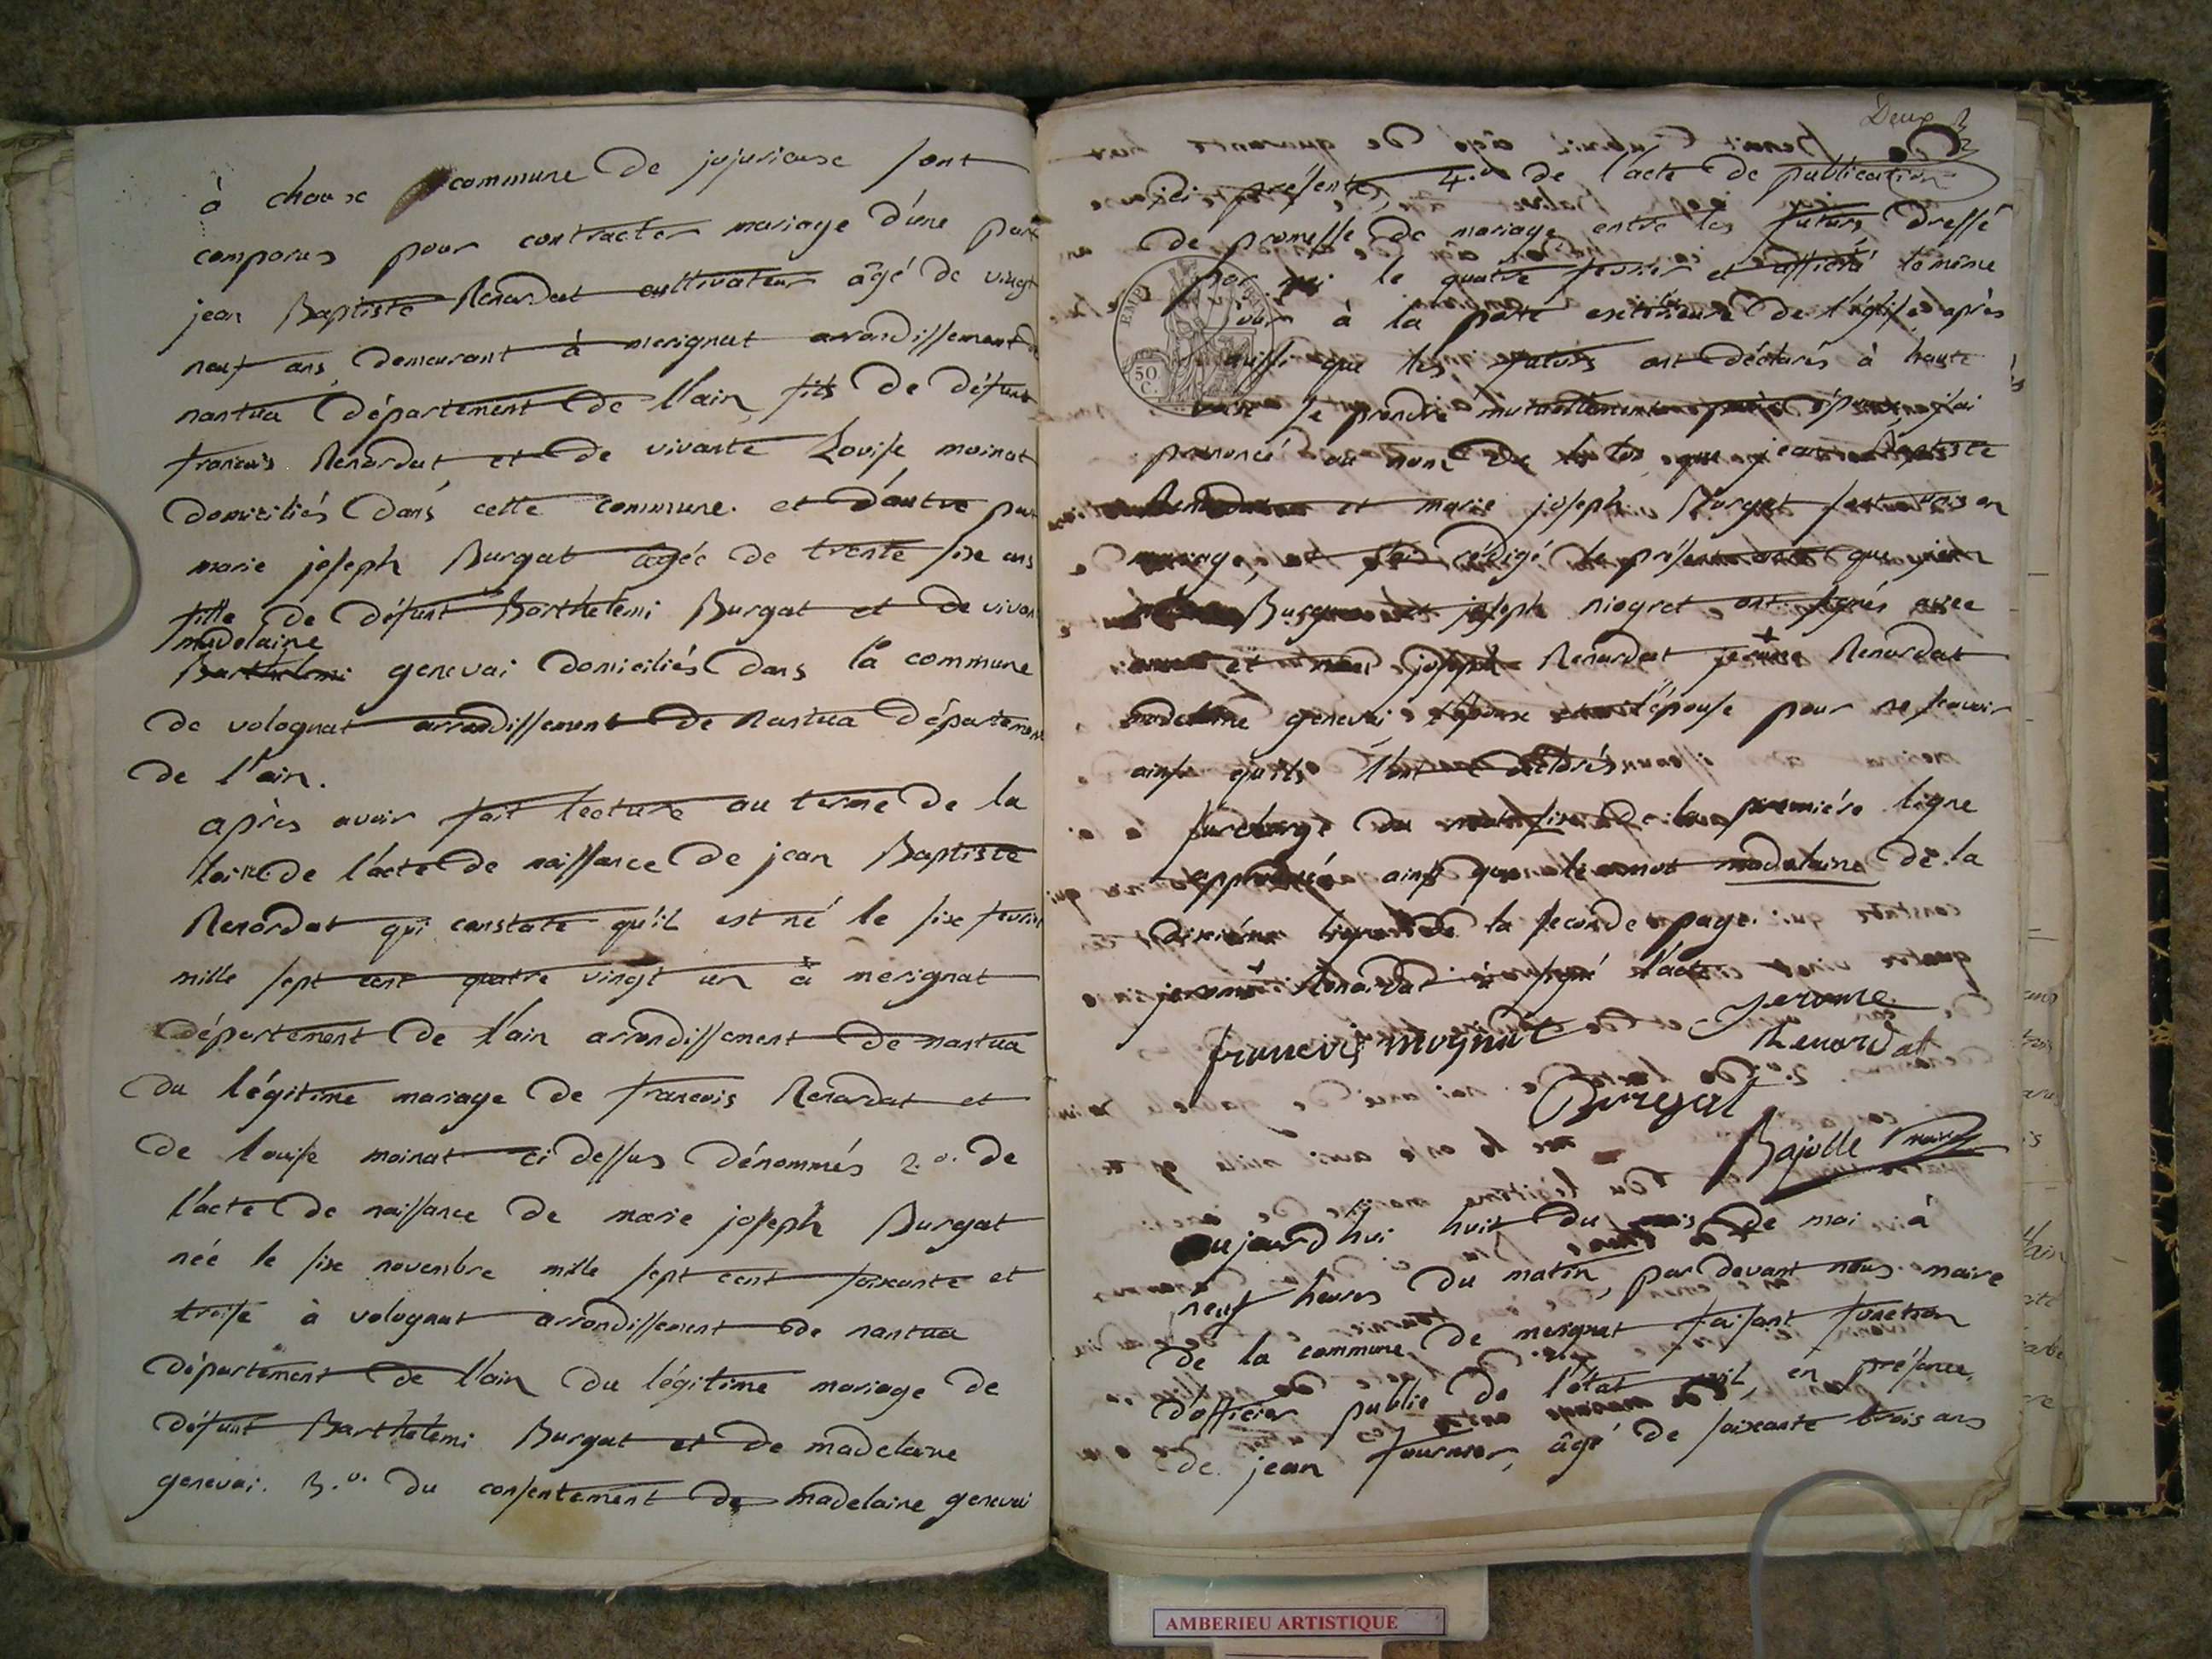 à chaux commune de jujurieuse sont
comparus pour contracter mariage d'une part
jean Baptiste Renardat cultivateur âgé de vingt
neuf ans demeurant à merignat arrondissement de
nantua département de l'ain, fils de défunt
francois Renardat et de vivante Louise moinat
domiciliés dans cette commune. et d'autre part
marie joseph Burgat agée de trente six ans
fille de défunt Barthelemi Burgat et de vivante
madelaine
Barthelemi genevai domiciliés dans la commune
de volognat arrondissement de Nantua département
de l'ain.
après avoir fait lecture au terme de la
loi de l'acte de naissance de jean Baptiste
Renardat qui constate qu'il est né le six fevrier
mille sept cent quatre vingt un à merignat
département de l'ain arrondissement de nantua
du légitime mariage de francois Renardat et
de louise moinat ci dessus dénommés 2.o de
l'acte de naissance de marie joseph Burgat
née le six novembre mille sept cent soixante et
treise à volognat arrondissement de nantua
département de l'ain du légitime mariage de
défunt Barthelemi Burgat et de madelaine
genevai. 3.o du consentement de madelaine genevai
Deux
ici présente, 4.o de l'acte de publication
de promesse de mariage entre les futurs dressé
par moi le quatre fevrier et affiché le même
jour à la porte exterieure de l'église après
aussi que les futurs ont déclarés à haute
voix se prendre mutuellement pour époux, j'ai
prononcé au nom de la loi que jean Baptiste
Renardat et marie joseph Burgat sont unis en
mariage, et j'ai rédigé le présent acte que
Burgat et joseph niogret ont signés avec
et joseph Renardat jerome Renardat
madelaine genevai, l'épouse pour ne scavoir
ainsi qu'ils l'ont déclarés.
surcharge du mot six de la première ligne
approuvée ainsi que le mot madelaine de la
dixième ligne de la seconde page.
jerome Renardat a signé l'acte
francois moynat jerome
Renardat
Burgat
Bajolle maire
aujourd'hui huit du mois de mai à
neuf heures du matin, par devant nous maire
de la commune de merignat faisant fonction
d'officier public de l'état civil, en présence
de jean fournier, âgé de soixante trois ans
EMP
50
C.
AMBERIEU ARTISTIQUE